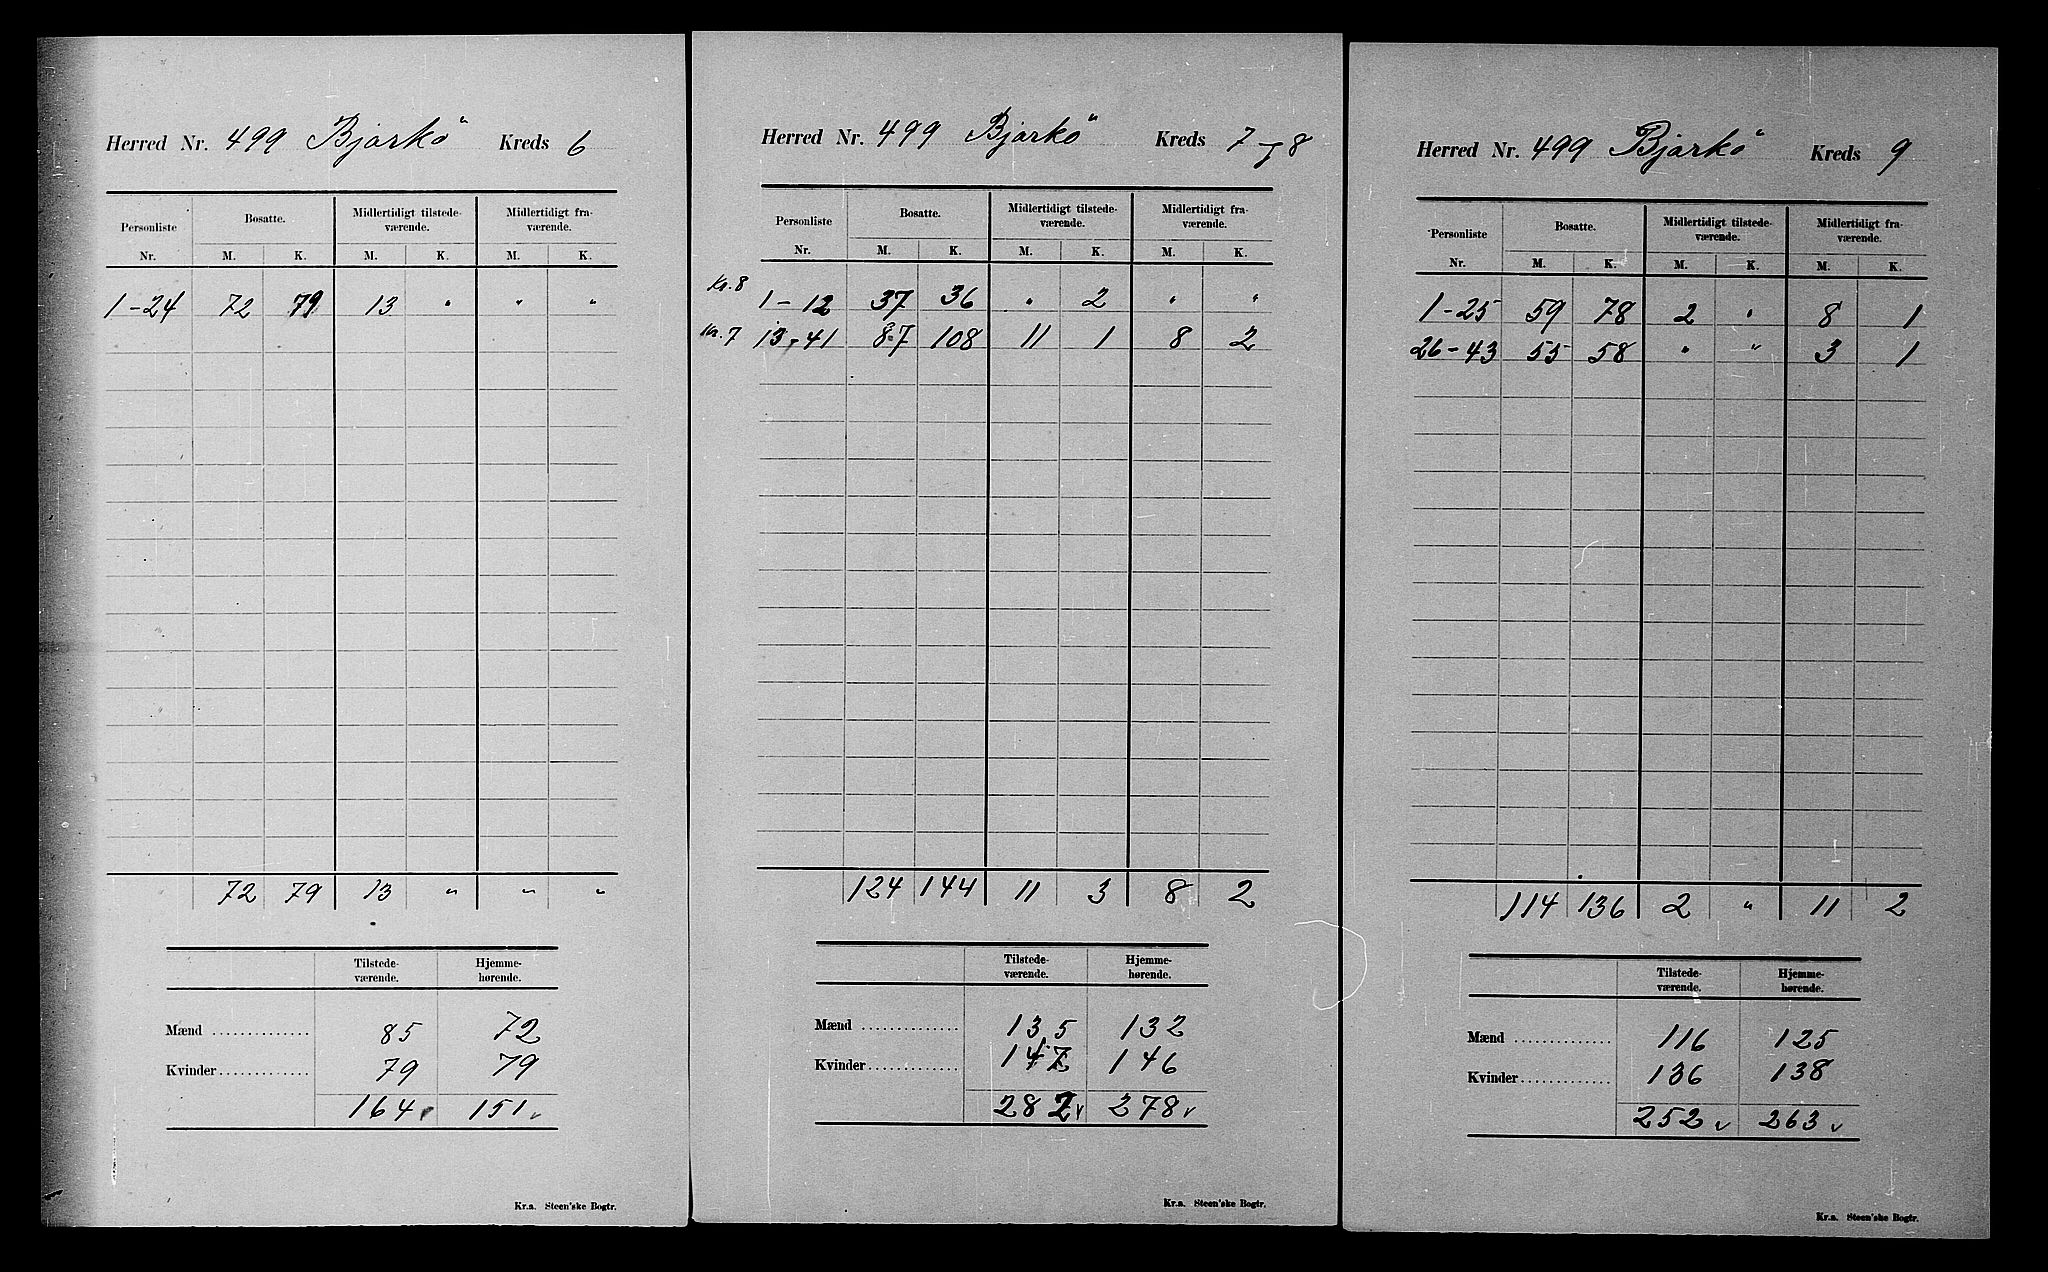 Herred Nr. 499 Bjarkö Kreds 6
Personliste Bosatte. Midlertidigt tilstede- Midlertidigt fra-
værende. værende.
Nr. M. K. M. K. M. K.
1-24 72 79 13 " " "
72 79 13 " " "
Tilstede- Hjemme-
værende. hørende.
Mænd .......... 85 72
Kvinder .......... 79 79
164 151 v
Kr.a. Steen'ske Bogtr.
Herred Nr. 499 Bjarkö Kreds 7 - 8
Personliste Bosatte. Midlertidigt tilstede- Midlertidigt fra-
værende. værende.
Nr. M. K. M. K. M. K.
Kr. 8 1-12 37 36 " 2 " "
Kr. 7 13-41 87 108 11 1 8 2
124 144 11 3 8 2
Tilstede- Hjemme-
værende. hørende.
Mænd .......... 135 132
Kvinder .......... 147 146
282 v 278 v
Kr.a. Steen'ske Bogtr.
Herred Nr. 499 Bjarkö Kreds 9
Personliste Bosatte. Midlertidigt tilstede- Midlertidigt fra-
værende. værende.
Nr. M. K. M. K. M. K.
1-25 59 78 2 " 8 1
26-43 55 58 " " 3 1
114 136 2 " 11 2
Tilstede- Hjemme-
værende. hørende.
Mænd .......... 116 125
Kvinder .......... 136 138
252 v 263 v
Kr.a. Steen'ske Bogtr.